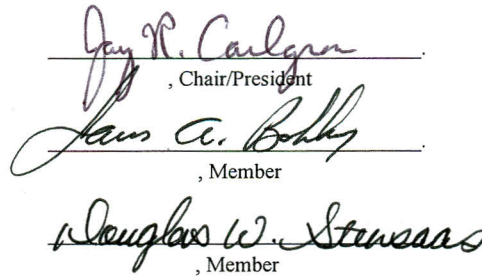 Jay R. Carlgren
, Chair/President
A.
, Member
Douglas W. Stensaas
, Member